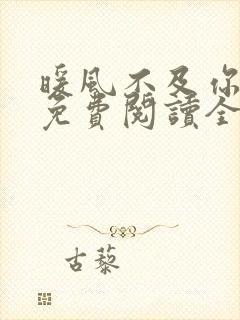 暖風不及你
免費閱讀全
古藜